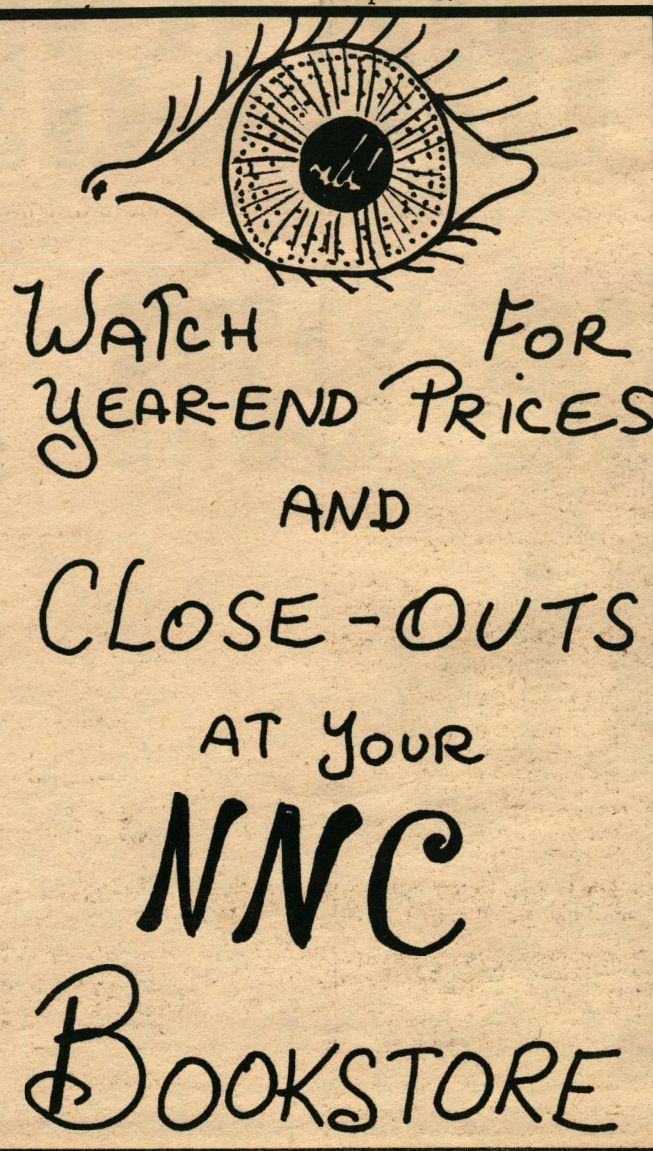 WATCH FOR
YEAR-END PRiCES
AND
CLOSE-OUTS
AT YOUR
NNC
BOOKSTORE